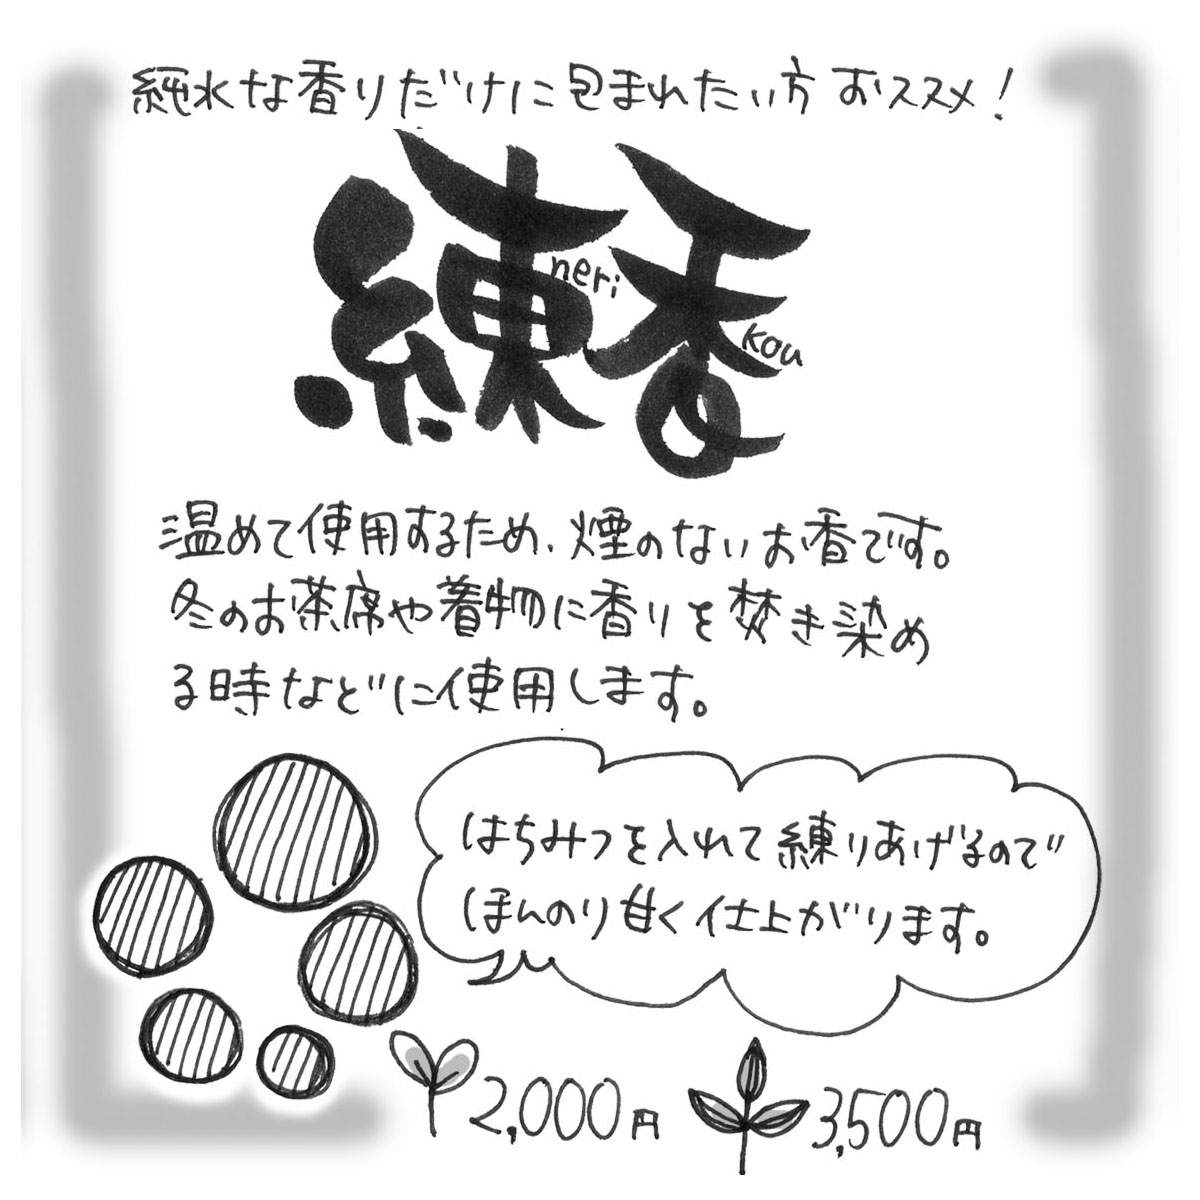 純水な香りだけに包まれたい方おススメ!
練香
neri
kou
温めて使用するため、煙のないお香です。
冬のお茶席や着物に香りを焚き染め
る時などに使用します。
はちみつを入れて練りあげるので
ほんのり甘く仕上がります。
2,000円
3,500円